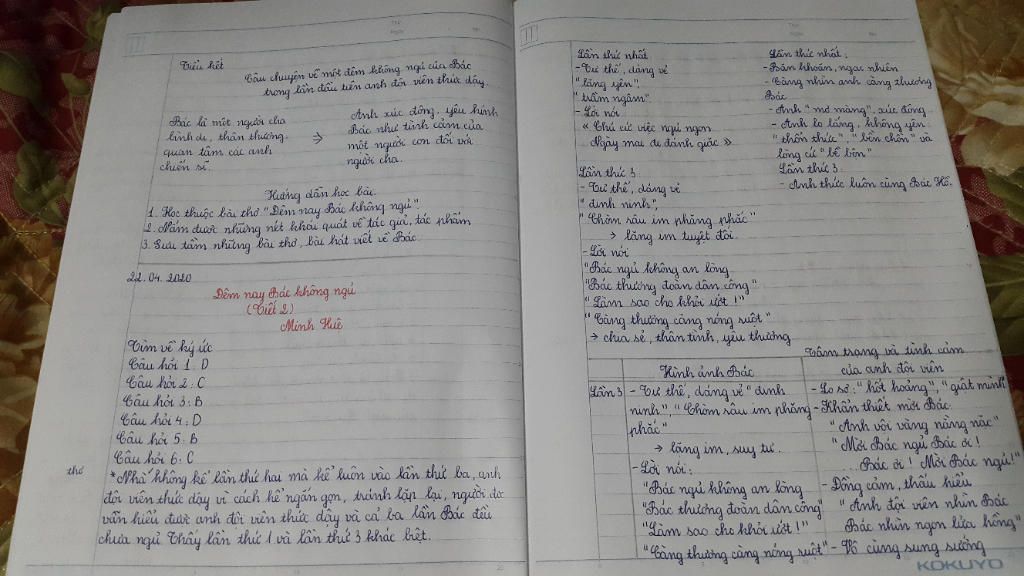 Tiểu kết
Câu chuyện về một đêm không ngủ của Bác
trong lần đầu tiên anh đội viên thức dậy.
Bác là một người cha
bình dị, thân thương.
quan tâm các anh
chiến sĩ.
→
Anh xúc động, yêu kính
Bác như tình cảm của
một người con đối với
người cha.
Hướng dẫn học bài.
1. Học thuộc bài thơ "Đêm nay Bác không ngủ".
2. Nắm được những nét khái quát về tác giả, tác phẩm
3. Sưu tầm những bài thơ, bài hát viết về Bác.
22.04.2020
Đêm nay Bác không ngủ
(Tiết 2)
Minh Huệ
Tìm về ký ức
Câu hỏi 1: D
Câu hỏi 2: C
Câu hỏi 3: B
Câu hỏi 4: D
Câu hỏi 5: B
Câu hỏi 6: C
thơ
*Nhà không kể lần thứ hai mà kể luôn vào lần thứ ba, anh
đội viên thức dậy vì cách kể ngắn gọn, tránh lặp lại, người đọ
vẫn hiểu được anh đội viên thức dậy và cả ba lần Bác đều
chưa ngủ. Thấy lần thứ 1 và lần thứ 3 khác biệt.
Lần thứ nhất
- Tư thế, dáng vẻ
"lặng yên",
"trầm ngâm"
- Lời nói
« Chú cứ việc ngủ ngon
Ngày mai đi đánh giặc »
Lần thứ 3
- Tư thế, dáng vẻ
"đinh ninh",
"Chòm râu im phăng phắc"
→ lặng im tuyệt đối.
- Lời nói
"Bác ngủ không an lòng
"Bác thương đoàn dân công"
"Làm sao cho khỏi ướt!"
"Càng thương càng nóng ruột"
→ chia sẻ, thân tình, yêu thương
Lần thứ nhất:
- Băn khoăn, ngạc nhiên
- Càng nhìn anh càng thương
Bác
- Anh "mơ màng", xúc động
- Anh lo lắng, không yên:
"thổn thức", "bồn chồn" và
lòng cứ "bề bộn"
Lần thứ 3:
- Anh thức luôn cùng Bác Hồ.
Hình ảnh Bác
Tâm trạng và tình cảm
của anh đội viên
Lần 3
- Tư thế, dáng vẻ "đinh
ninh" "Chòm râu im phăng
phắc"
→ lặng im, suy tư.
- Lời nói:
"Bác ngủ không an lòng
"Bác thương đoàn dân công"
"Làm sao cho khỏi ướt!"
"Càng thương càng nóng ruột"
- Lo sợ: "hốt hoảng", "giật mình"
- Khẩn thiết mời Bác.
"Anh vội vàng nằng nặc"
"Mời Bác ngủ Bác ơi!
...Bác ơi! Mời Bác ngủ!"
- Đồng cảm, thấu hiểu
"Anh đội viên nhìn Bác
Bác nhìn ngọn lửa hồng"
- Vô cùng sung sướng
KOKUYO